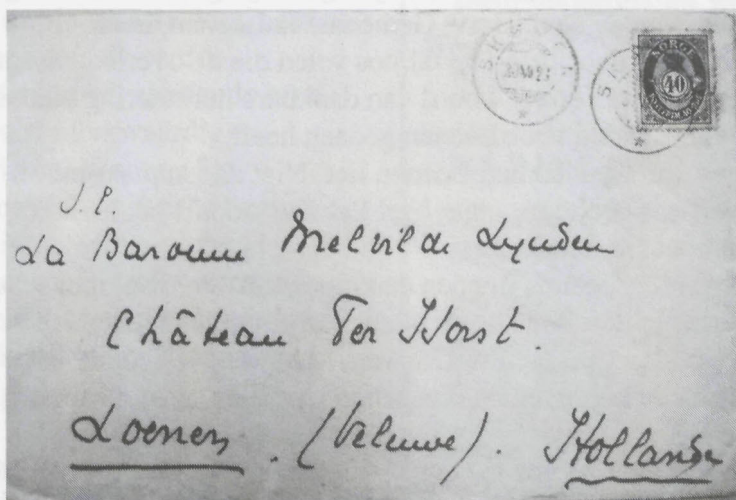 40
S.E.
La Baronne Melvil de Lynden
Château Ter Horst.
Loenen. (Veluwe). Hollande